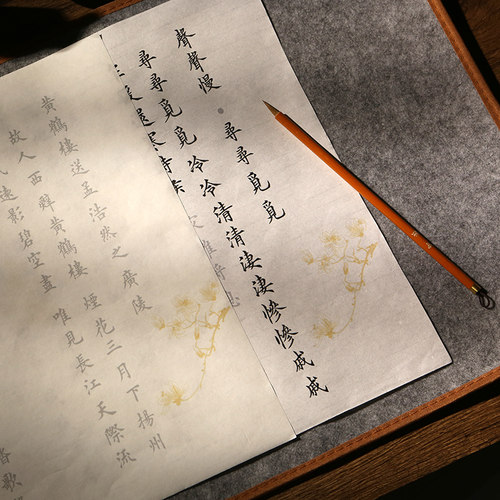 聲聲慢・尋尋覓覓
尋尋覓覓冷冷清清淒淒慘慘戚戚
暖還寒時候
黃鶴樓送孟浩然之廣陵
故人西辭黃鶴樓 煙花三月下揚州
遠影碧空盡 唯見長江天際流
歌